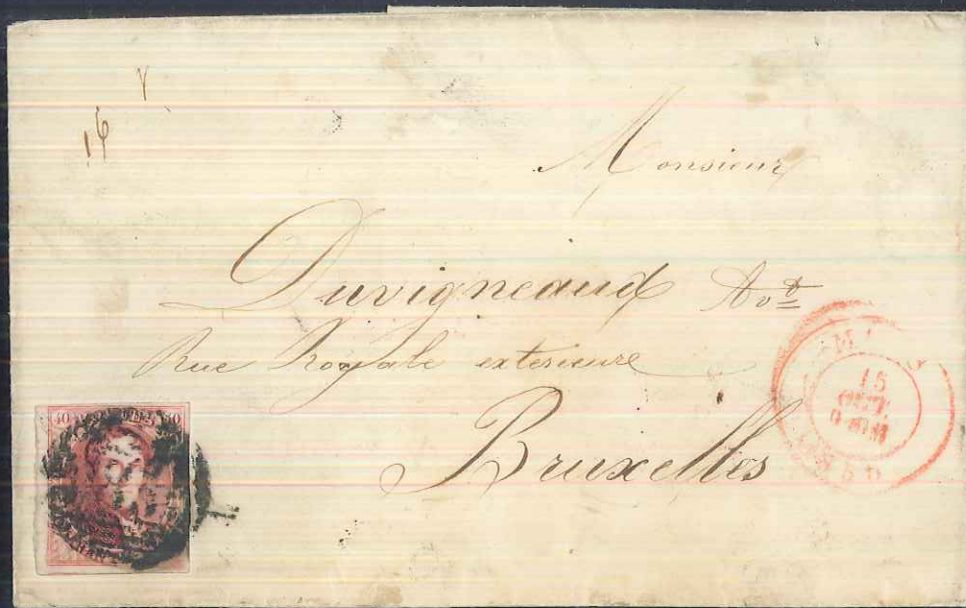 16
Monsieur
Duvigneaud Avt
Rue Royale exterieure
Bruxelles
40 40
15